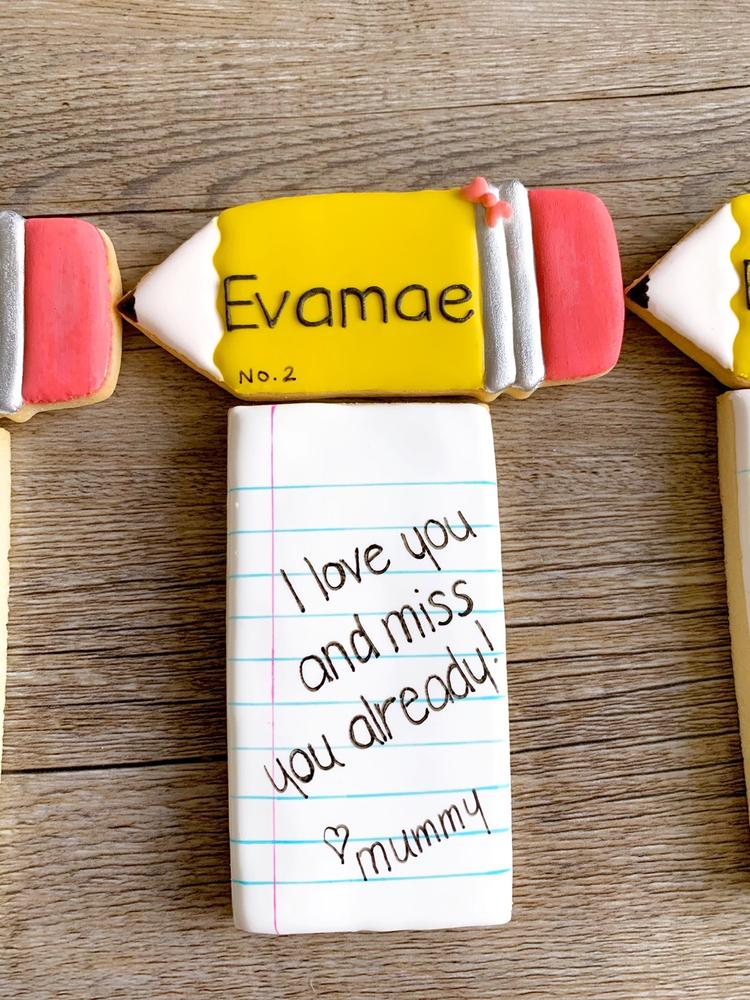 Evamae
No. 2
I love you
and miss
you already!
♡ mummy